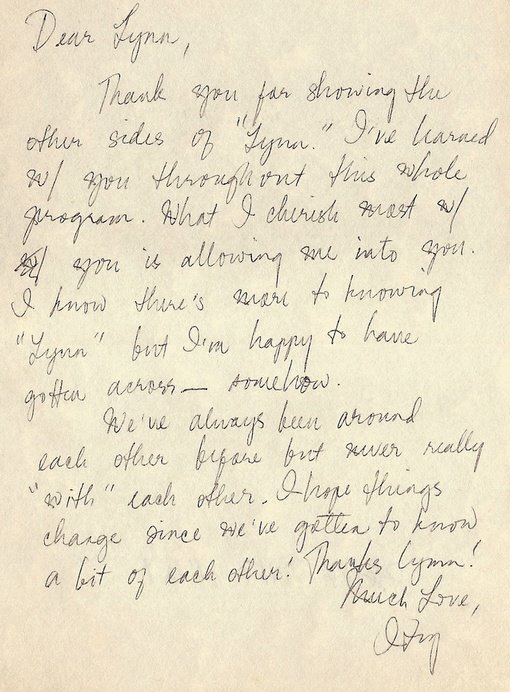 Dear Lynn,
Thank you for showing the
other sides of "Lynn." I've learned
w/ you throughout this whole
program. What I cherish most w/
you is allowing me into you.
I know there's more to knowing
"Lynn" but I'm happy to have
gotten across— somehow.
We've always been around
each other before but never really
"with" each other. I hope things
change since we've gotten to know
a bit of each other! Thanks Lynn!
Much Love,